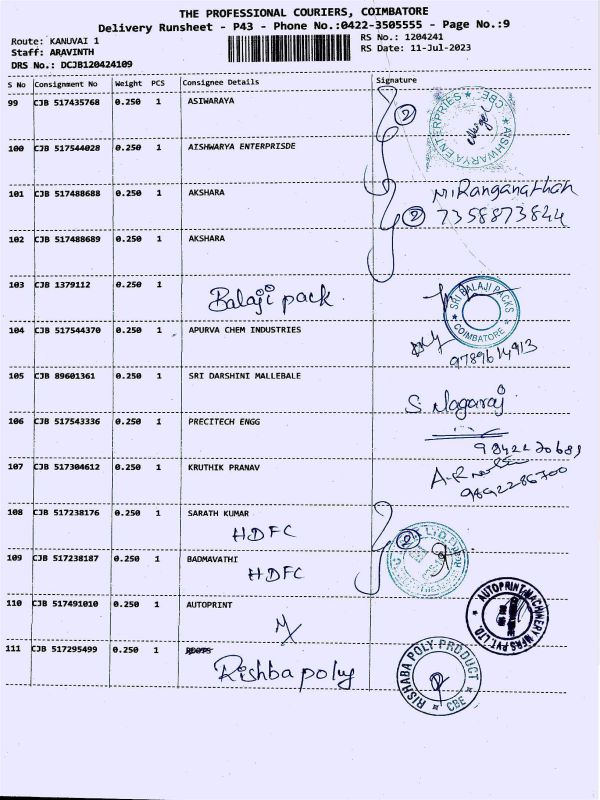 THE PROFESSIONAL COURIERS, COIMBATORE
Delivery Runsheet - P43 - Phone No.:0422-3505555 - Page No.:9
Route: KANUVAI 1
RS No.: 1204241
Staff: ARAVINTH
RS Date: 11-Jul-2023
DRS No.: DCJB120424109
S No Consignment No Weight PCS Consignee Details Signature
99 CJB 517435768 0.250 1 ASIWARAYA
2
AISHWARYA ENTERPRIES CBE
100 CJB 517544028 0.250 1 AISHWARYA ENTERPRISDE
101 CJB 517488688 0.250 1 AKSHARA
M Ranganathan
2 7358873844
102 CJB 517488689 0.250 1 AKSHARA
103 CJB 1379112 0.250 1
Balaji pack.
SRI BALAJI PACKS COIMBATORE
104 CJB 517544370 0.250 1 APURVA CHEM INDUSTRIES
9789614913
105 CJB 89601361 0.250 1 SRI DARSHINI MALLEBALE
S. Nagaraj
106 CJB 517543336 0.250 1 PRECITECH ENGG
107 CJB 517304612 0.250 1 KRUTHIK PRANAV
9892286700
108 CJB 517238176 0.250 1 SARATH KUMAR
HDFC
2
109 CJB 517238187 0.250 1 BADMAVATHI
HDFC
110 CJB 517491010 0.250 1 AUTOPRINT
AUTOPRINT MACHINERY MFRS.PVT.LTD.
111 CJB 517295499 0.250 1 ROOTS
Rishba poly
RISHABA POLY-PRODUCT CBE